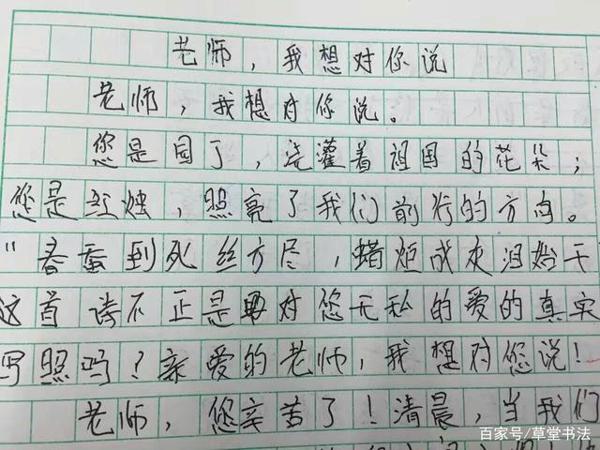 老师，我想对你说
老师，我想对你说。
您是园丁，浇灌着祖国的花朵；
您是红烛，照亮了我们前行的方向。
"春蚕到死丝方尽，蜡炬成灰泪始干
这首诗不正是对您无私的爱的真实
写照吗？亲爱的老师，我想对您说！
老师，您辛苦了！清晨，当我们
百家号/草堂书法